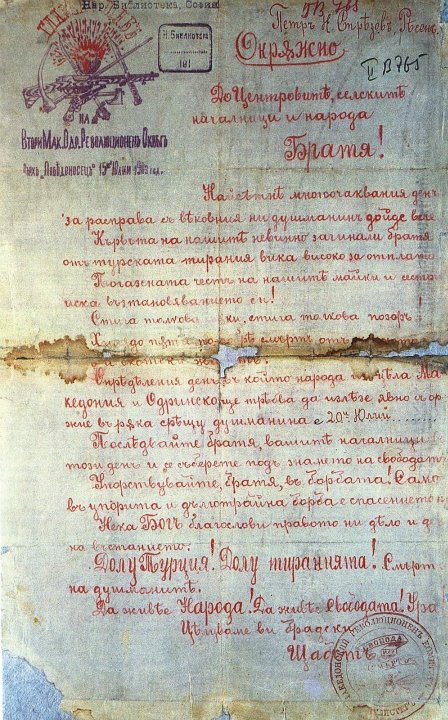 Нар. Библиотека, София
Н. Библиотека
181
ПВ 765
Петръ К. Вързевъ, Ресенъ
II В 765
Окрѫжно
ГЛАВЕНЪ ЩАБЪ
НА
Втори Мак. Одр. Революционенъ Окрѫгъ
15й Юлий 1903 год.
До Центровитѣ, селскитѣ
началници и народа
Братя!
Найсѣтнѣ многоочаквания день
за расправа съ вѣковния ни душманинъ дойде вече
Кръвьта на нашитѣ невинно загинали братя
отъ турската тирания вика високо за отплата
Погазената честь на нашитѣ майки и сестри
иска възтановяванието си!
Стига толкова мѫки, стига толкова позоръ!
смерть отъ
Опрѣдѣления день, въ който народа изъ цѣла Ма-
кедония и Одринско ще трѣбва да излѣзе явно съ орѫ-
жие въ рѫка срѣщу душманина е 20й Юлий
Послѣдвайте братя, вашитѣ началници
този день и се съберете подъ знамето на свободата
Упорствувайте, братя, въ борбата! Само
въ упорита и дълготрайна борба е спасението ни
Нека Богъ благослови правото ни дѣло и деня
на въстанието!
Долу Турция! Долу тиранията! Смерть
на душманитѣ.
Да живѣе Народа! Да живѣе Свободата! Ура
Цѣлуваме ви братски
Щабътъ
МАКЕДОНСКИЙ РЕВОЛЮЦИОНЕНЪ
СВОБОДА
ИЛИ
СМЕРТЬ